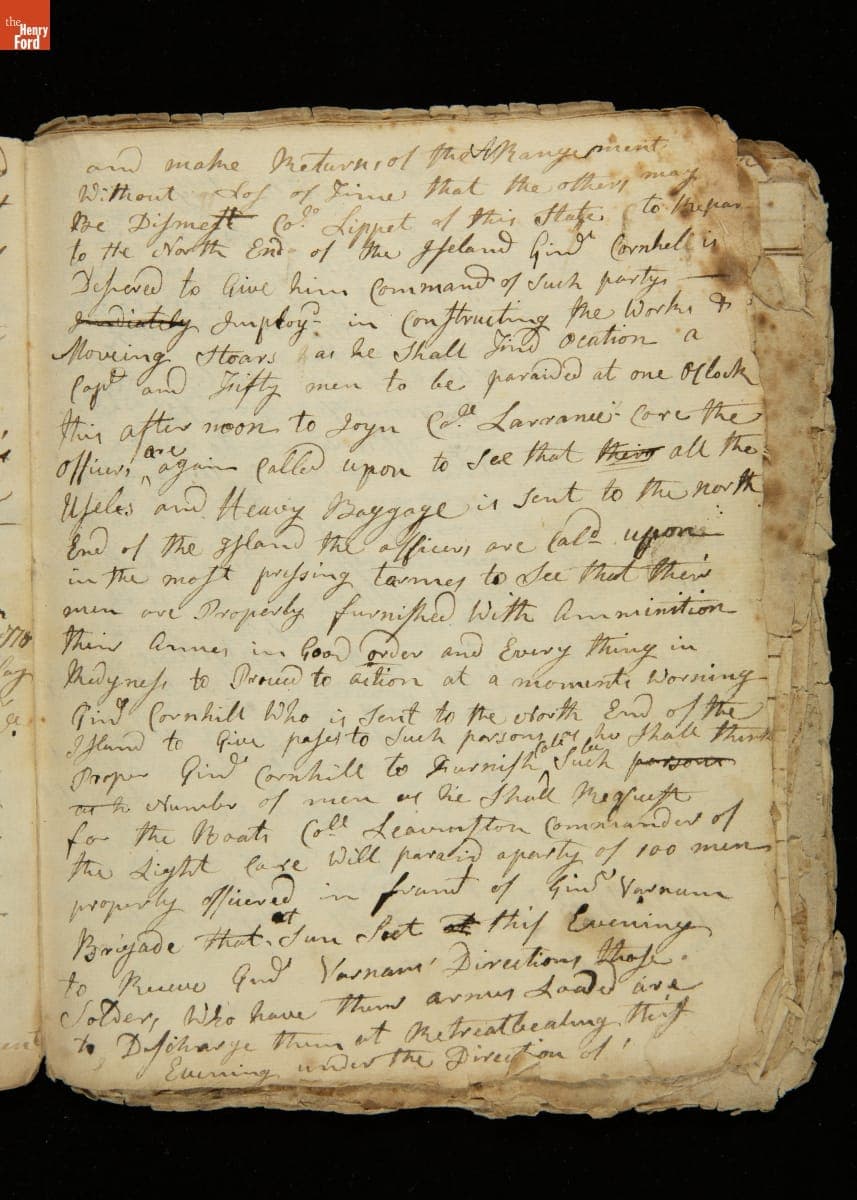 the
Henry
Ford
and make Returns of the ARangement
Without Los of Time that the others may
Be Dismest Colo Lippet of this State to Repar
to the North End of the Iseland Ginl Cornhel is
Desiered to Give him Command of Such partys
Imidiately Imployd in Constructing the Works &
Moveing Stoars as he Shall find ocation a
Capt and Fifty men to be paraided at one Oclock
this after noon to Joyn Colo Larranes Core the
officers are again Called upon to See that thire all the
Useles and Heavy Baggage is Sent to the north
End of the Island the officers are Cald upon
in the most pressing tarmes to See that their
men are Properly furnished With Amminition
their Armes in Good order and Every thing in
Redyness to Proceed to action at a moments Worning
Ginl Cornhill Who is Sent to the North End of the
Island to Give pases to Such parsons as he Shall think
Proper Ginl Cornhill to Furnish Such parsons
as h Number of men as he Shall Request
for the Boats Coll Leavinston Commander of
the Light Core Will paraid a party of 100 men
properly officered in fraunt of Ginl Varnam
Brigade that at Sun Set at this Evening
to Receve Ginl Varnams Directions those
Solders Who have there armes Loaded are
to Discharge them at Retreatbeating this
Evening under the Direction of
1778